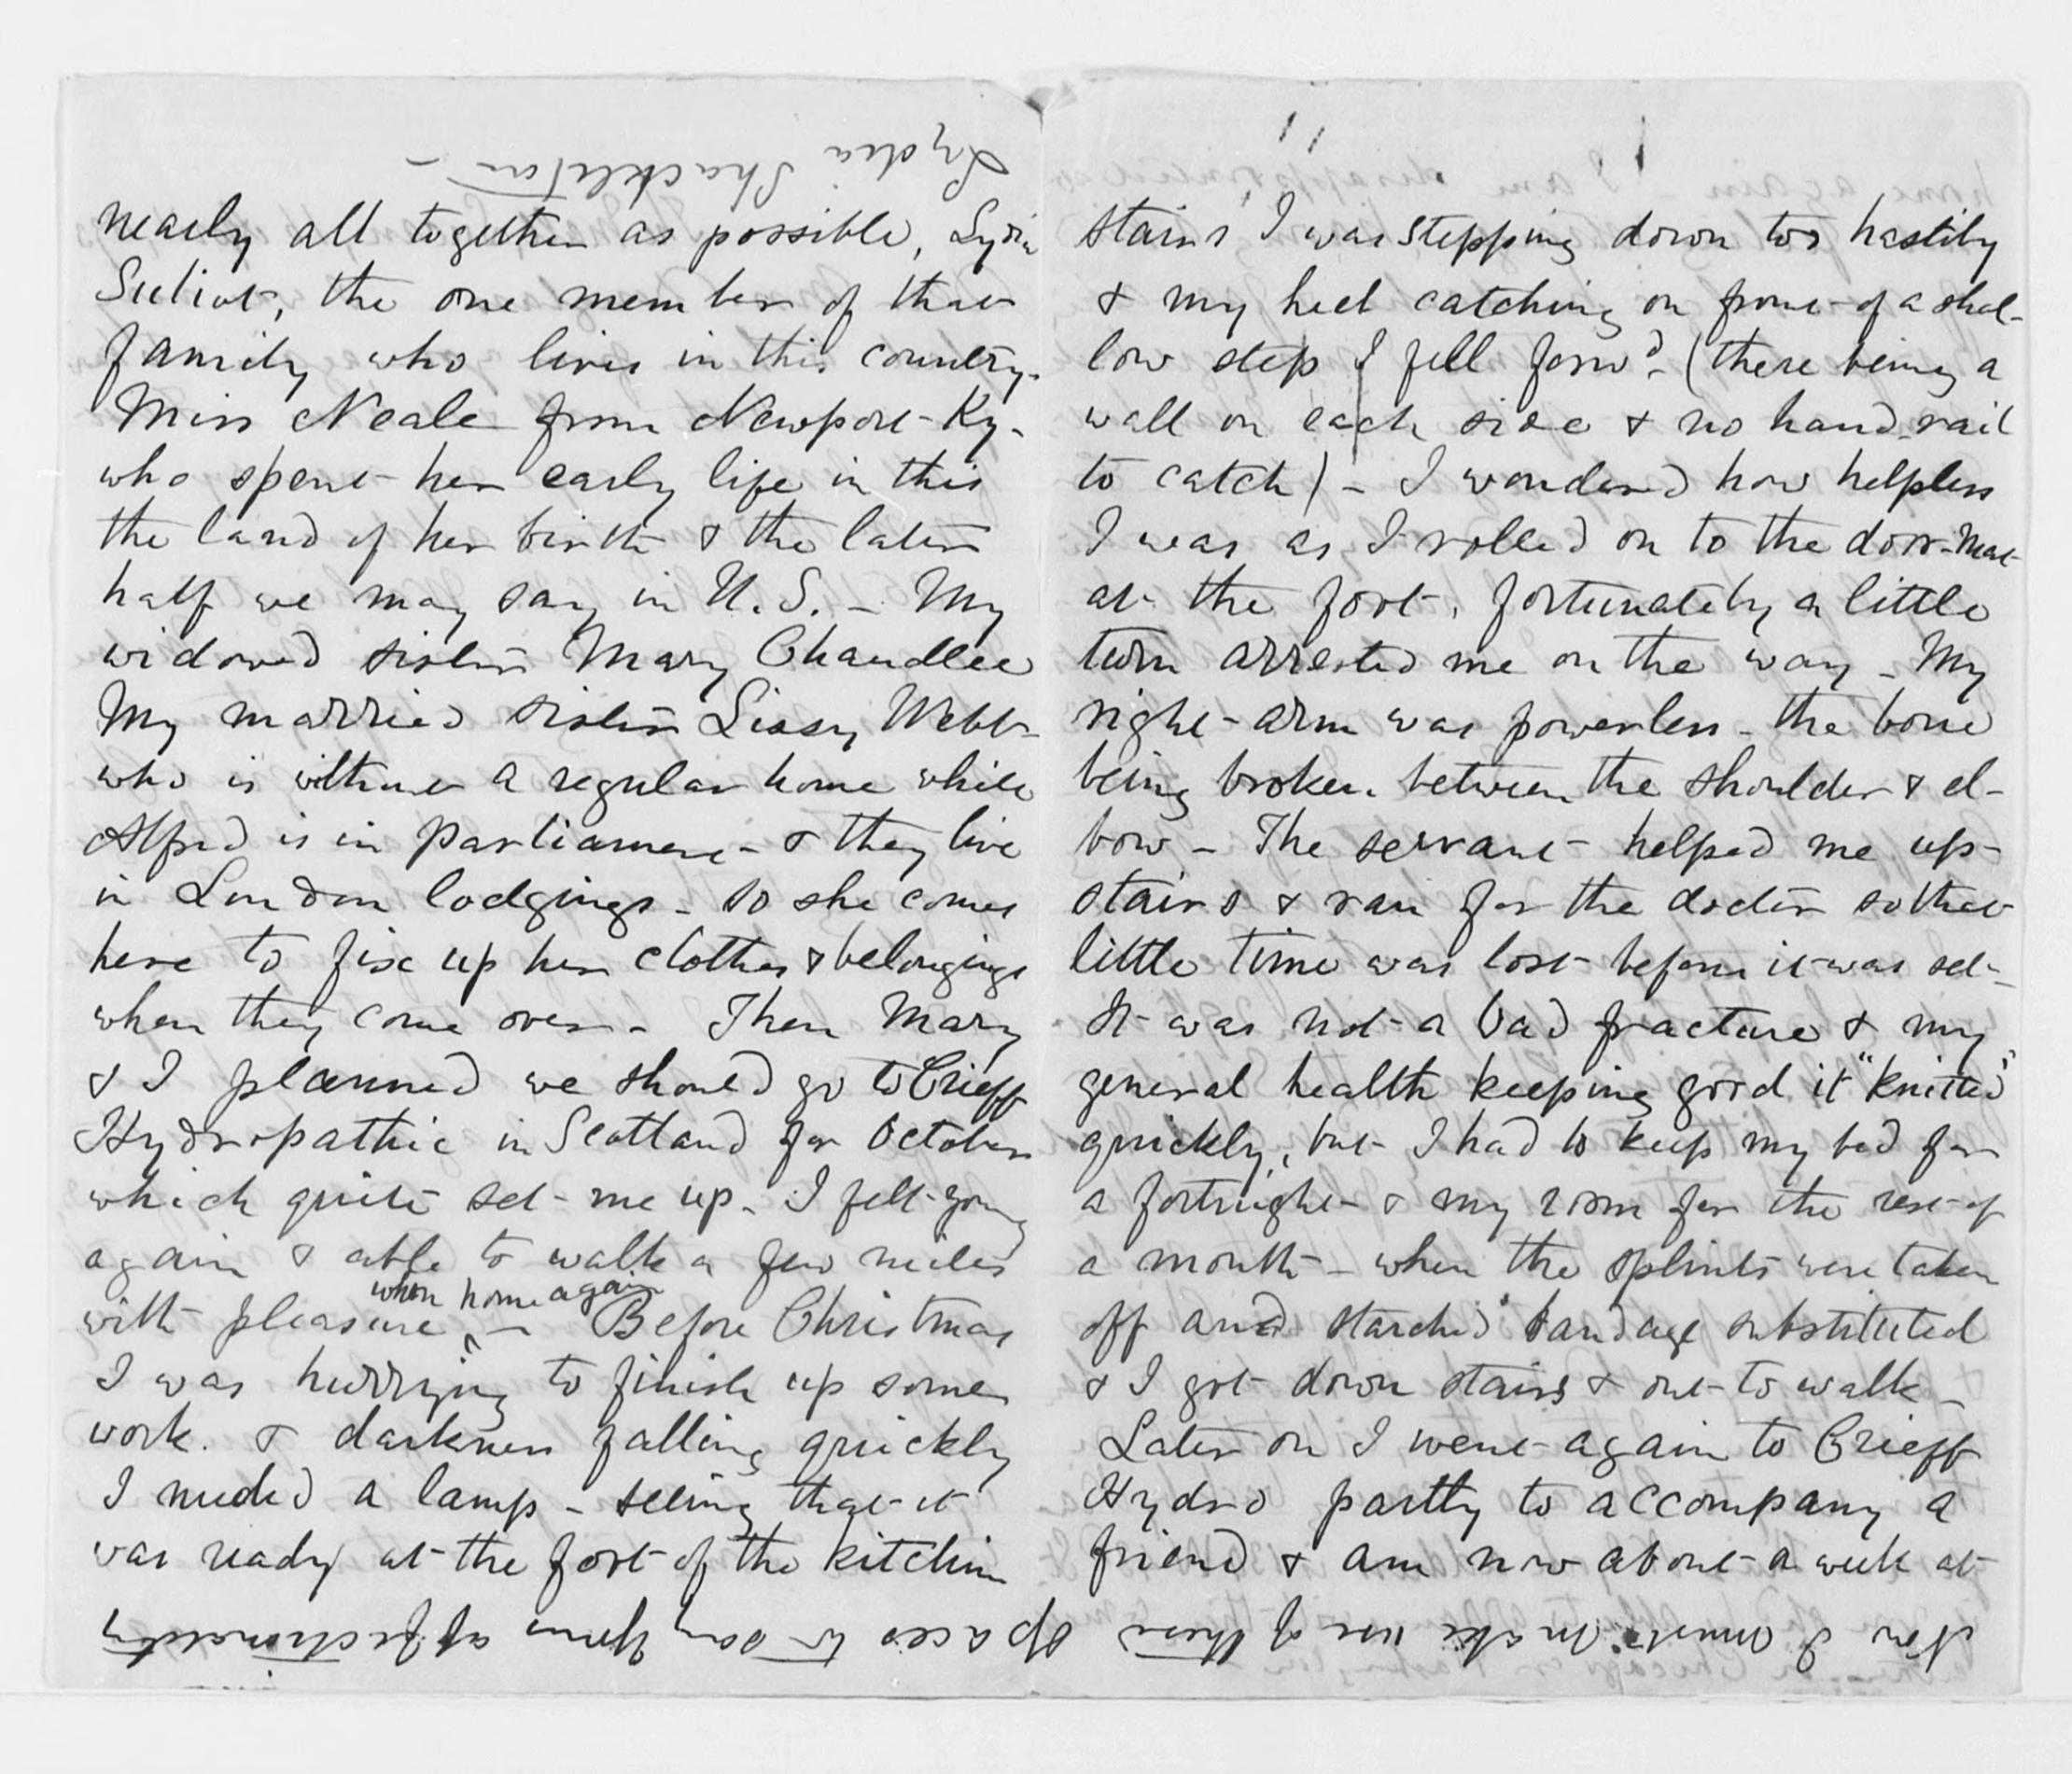 nearly all together as possible, Lydia
Suliot, the one member of that
family who lives in this country.
Miss Neale from Newport - Ky.
who spent her early life in this
the land of her birth & the later
half we may say in U.S. - My
widowed sister Mary Chandlee
My married sister Lissy Webb -
who is without a regular home while
Alfred is in Parliament - & they live
in London lodgings - so she comes
here to fix up her clothes & belongings
when they come over - Then Mary
& I planned we should go to Crieff
Hydropathic in Scotland for October
which quite set me up. I felt young
again & able to walk a few miles
with pleasure when home again - Before Christmas
I was hurrying to finish up some
work. & darkness falling quickly
I needed a lamp - seeing that it
was ready at the foot of the kitchen
stairs I was stepping down too hastily
& my heel catching on front of a shal-
low step I fell forwd - (there being a
wall on each side & no hand-rail
to catch) - I wondered how helpless
I was as I rolled on to the door-mat
at the foot, fortunately a little
turn arrested me on the way - My
right arm was powerless - the bone
being broken between the shoulder & el-
bow - The servant helped me up-
stairs & ran for the doctor so that
little time was lost before it was set -
It was not a bad fracture & my
general health keeping good it "knitted"
quickly, but I had to keep my bed for
a fortnight & my room for the rest of
a month - when the splints were taken
off and starched bandage substituted
& I got down stairs & out to walk -
Later on I went again to Crieff
Hydro partly to accompany a
friend & am now about a week at
I must make use of these
spaces to say I am affectionately
Lydia Shackleton -